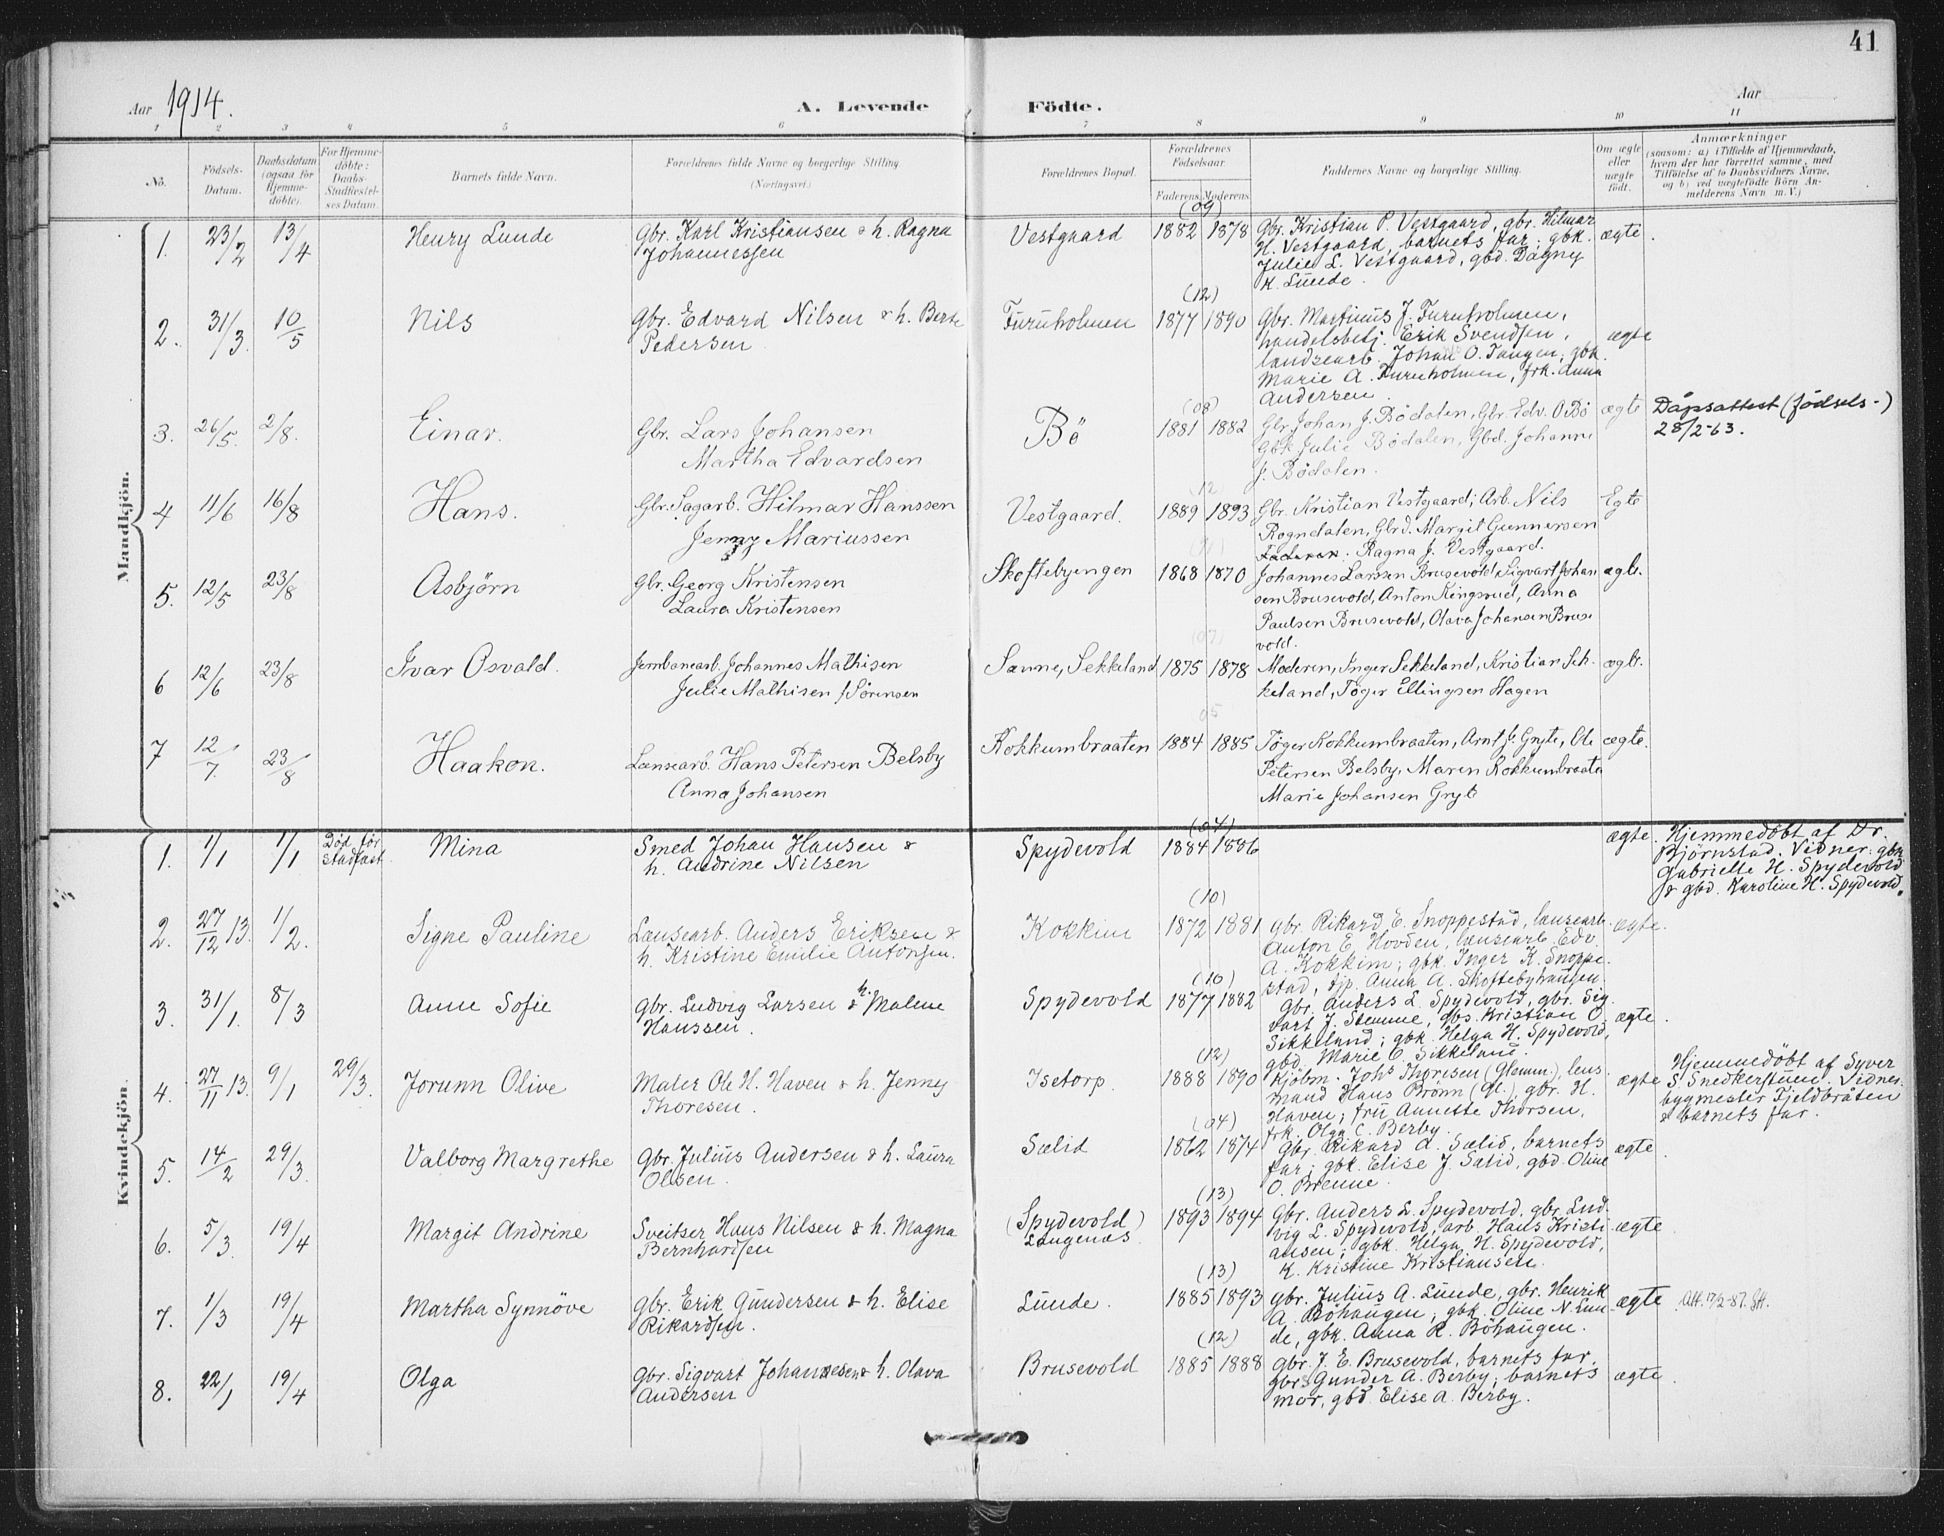 41
Aar 1914.
A. Levende Födte.
Aar
1 2 3 4 5 6 7 8 9 10 11
No.
Födsels-Datum.
Daabsdatum (ogsaa for Hjemmedöbte).
For Hjemmedöbte: Daabs-Stadfæstelses Datum.
Barnets fulde Navn.
Forældrenes fulde Navne og borgerlige Stilling (Næringsvei.)
Forældrenes Bopæl.
Forældrenes Födselsaar.
Faderens Moderens
Faddernes Navne og borgerlige Stilling.
Om ægte eller uægte födt.
Anmærkninger
(saasom: a) i Tilfælde af Hjemmedaab,
hvem der har forrettet samme, med
Tilföielse af to Daabsvidners Navne,
og b) ved uægtefödte Börn An-
melderens Navn m. V.)
Mandkjön.
1. 23/2 13/4 Henry Lunde
Gbr. Karl Kristiansen & h. Ragna
Johannessen
Vestgaard (09) 1882 1878
Gbr. Kristian P. Vestgaard, gbr. Hilmar
H. Vestgaard, barnets far; gbk.
Julie L. Vestgaard, gbd. Dagny
K. Lunde.
ægte.
2. 31/3. 10/5 Nils
Gbr. Edvard Nilsen & h. Berte
Pedersen.
Furuholmen (12) 1877 1890
Gbr. Martinus J. Furuholmen,
handelsbetj. Erik Svendsen,
landsearb. Johan O. Tangen; gbk.
Marie A. Furuholmen, frk. Anna
Andersen.
ægte
3. 26/5. 2/8. Einar.
Gbr. Lars Johansen
Martha Edvardsen
Bö (08) 1881 1882
Gbr. Johan J. Bödalen, Gbr. Edv. O. Bö
Gbk Julie Bödalen, Gbd. Johanne
J. Bödalen.
ægte
Dåpsattest (födsels-)
28/2-63.
4 11/6 16/8 Hans.
Gbr. Sagarb. Hilmar Hanssen
Jenny Mariussen
Vestgaard. (12) 1889 1893
Gbr. Kristian Vestgaard, Arb. Nils
Rogndalen, Gbrd. Margit Gunnersen
Faderen. Ragna J. Vestgaard.
Egte
5. 12/5 23/8 Asbjörn
Gbr. Georg Kristensen
Laura Kristensen
Skoftebyengen 1868 1870
Johannes Larssen Brusevold, Sigvart Johan
sen Brusevold, Anton Kingsrud, Anna
Paulsen Brusevold, Olava Johansen Bruse
vold.
ægte.
6 12/6 23/8 Ivar Osvald.
Jernbanearb. Johannes Mathisen
Julie Mathisen f. Sörensen
Sanne, Sekkeland (07) 1875 1878
Moderen, Inger Sekkeland, Kristian Sek-
keland, Töger Ellingsen Hagen
ægte.
7 12/7. 23/8 Haakon.
Lænsearb. Hans Petersen Belsby
Anna Johansen
Kokkumbraaten 05 1884 1885
Töger Kokkumbraaten, Arnt J. Gryte, Ole
Petersen Belsby, Maren Kokkumbraate
Marie Johansen Gryte
ægte.
Kvindekjön.
1. 1/1 1/1 Död för
stadfæst. Mina
Smed Johan Hansen &
h. Andrine Nilsen
Spydevold (04) 1884 1886
ægte.
Hjemmedöbt af Dr.
Björnstad. Vidner: gbk.
Gabrielle H. Spydevold
& gbd. Karoline H. Spydevold.
2. 27/12 13. 1/2. Signe Pauline
Lænsearb. Anders Eriksen &
h. Kristine Emilie Antonsen.
Kokkim (10) 1872 1881
gbr. Rikard E. Snoppestad, lænsearb.
Anton E. Hovden, lænsearb. Edv.
A. Kokkim; gbk. Inger K. Snoppe-
stad, tjp. Anna A. Skoftebyhaugen.
ægte.
3. 31/1. 8/3 Anne Sofie
Gbr. Ludvig Larsen & h. Malene
Hanssen.
Spydevold (10) 1877 1882
Gbr. Anders L. Spydevold, gbr. Sig-
vart J. Stemme, gbs. Kristian O.
Sikkeland; gbk. Helga H. Spydevold,
gbd. Marie C. Sikkeland.
ægte.
4. 27/11 13. 9/1 29/3. Jorunn Olive
Maler Ole H. Haven & h. Jenny
Thoresen.
Isetorp. (12) 1888 1890
Kjöbm. Johs Thoresen (Glemm.), lens-
mand Hans Brönn (Gl.), gbr. H.
Haven; fru Annette Thorsen,
frk. Olga C. Berby.
ægte
Hjemmedöbt af Syver
S. Snedkerstuen. Vidner:
bygmester Fjeldbråten
& barnets far.
5. 14/2 29/3. Valborg Margrethe
Gbr. Julius Andersen & h. Laura
Olsen.
Sælid (04) 1862 1874
Gbr. Rikard A. Sælid, barnets
far; gbk. Elise J. Sælid, gbd. Oline
O. Brenne.
ægte.
6. 5/3. 19/4 Margit Andrine
Sveitser Hans Nilsen & h. Magna
Bernhardsen
(Spydevold)
Langenæs. (13) 1893 1894
Gbr. Anders L. Spydevold, gbr. Lud-
vig L. Spydevold, arb. Hans Kristi-
ansen; gbk. Helga H. Spydevold,
K. Kristine Kristiansen.
ægte.
7. 1/3 19/4 Martha Synnöve
Gbr. Erik Gundersen & h. Elise
Rikardsen.
Lunde. (13) 1885 1893
Gbr. Julius A. Lunde, gbr. Henrik
A. Böhaugen; gbk. Oline N. Lun-
de, gbk. Anna R. Böhaugen.
ægte
8. 22/1 19/4 Olga
Gbr. Sigvart Johannesen & h. Olava
Andersen
Brusevold (12) 1885 1888
Gbr. J. E. Brusevold, barnets far,
gbrs Gunder A. Berby; barnets
mor, gbd Elise A. Berby.
ægte.